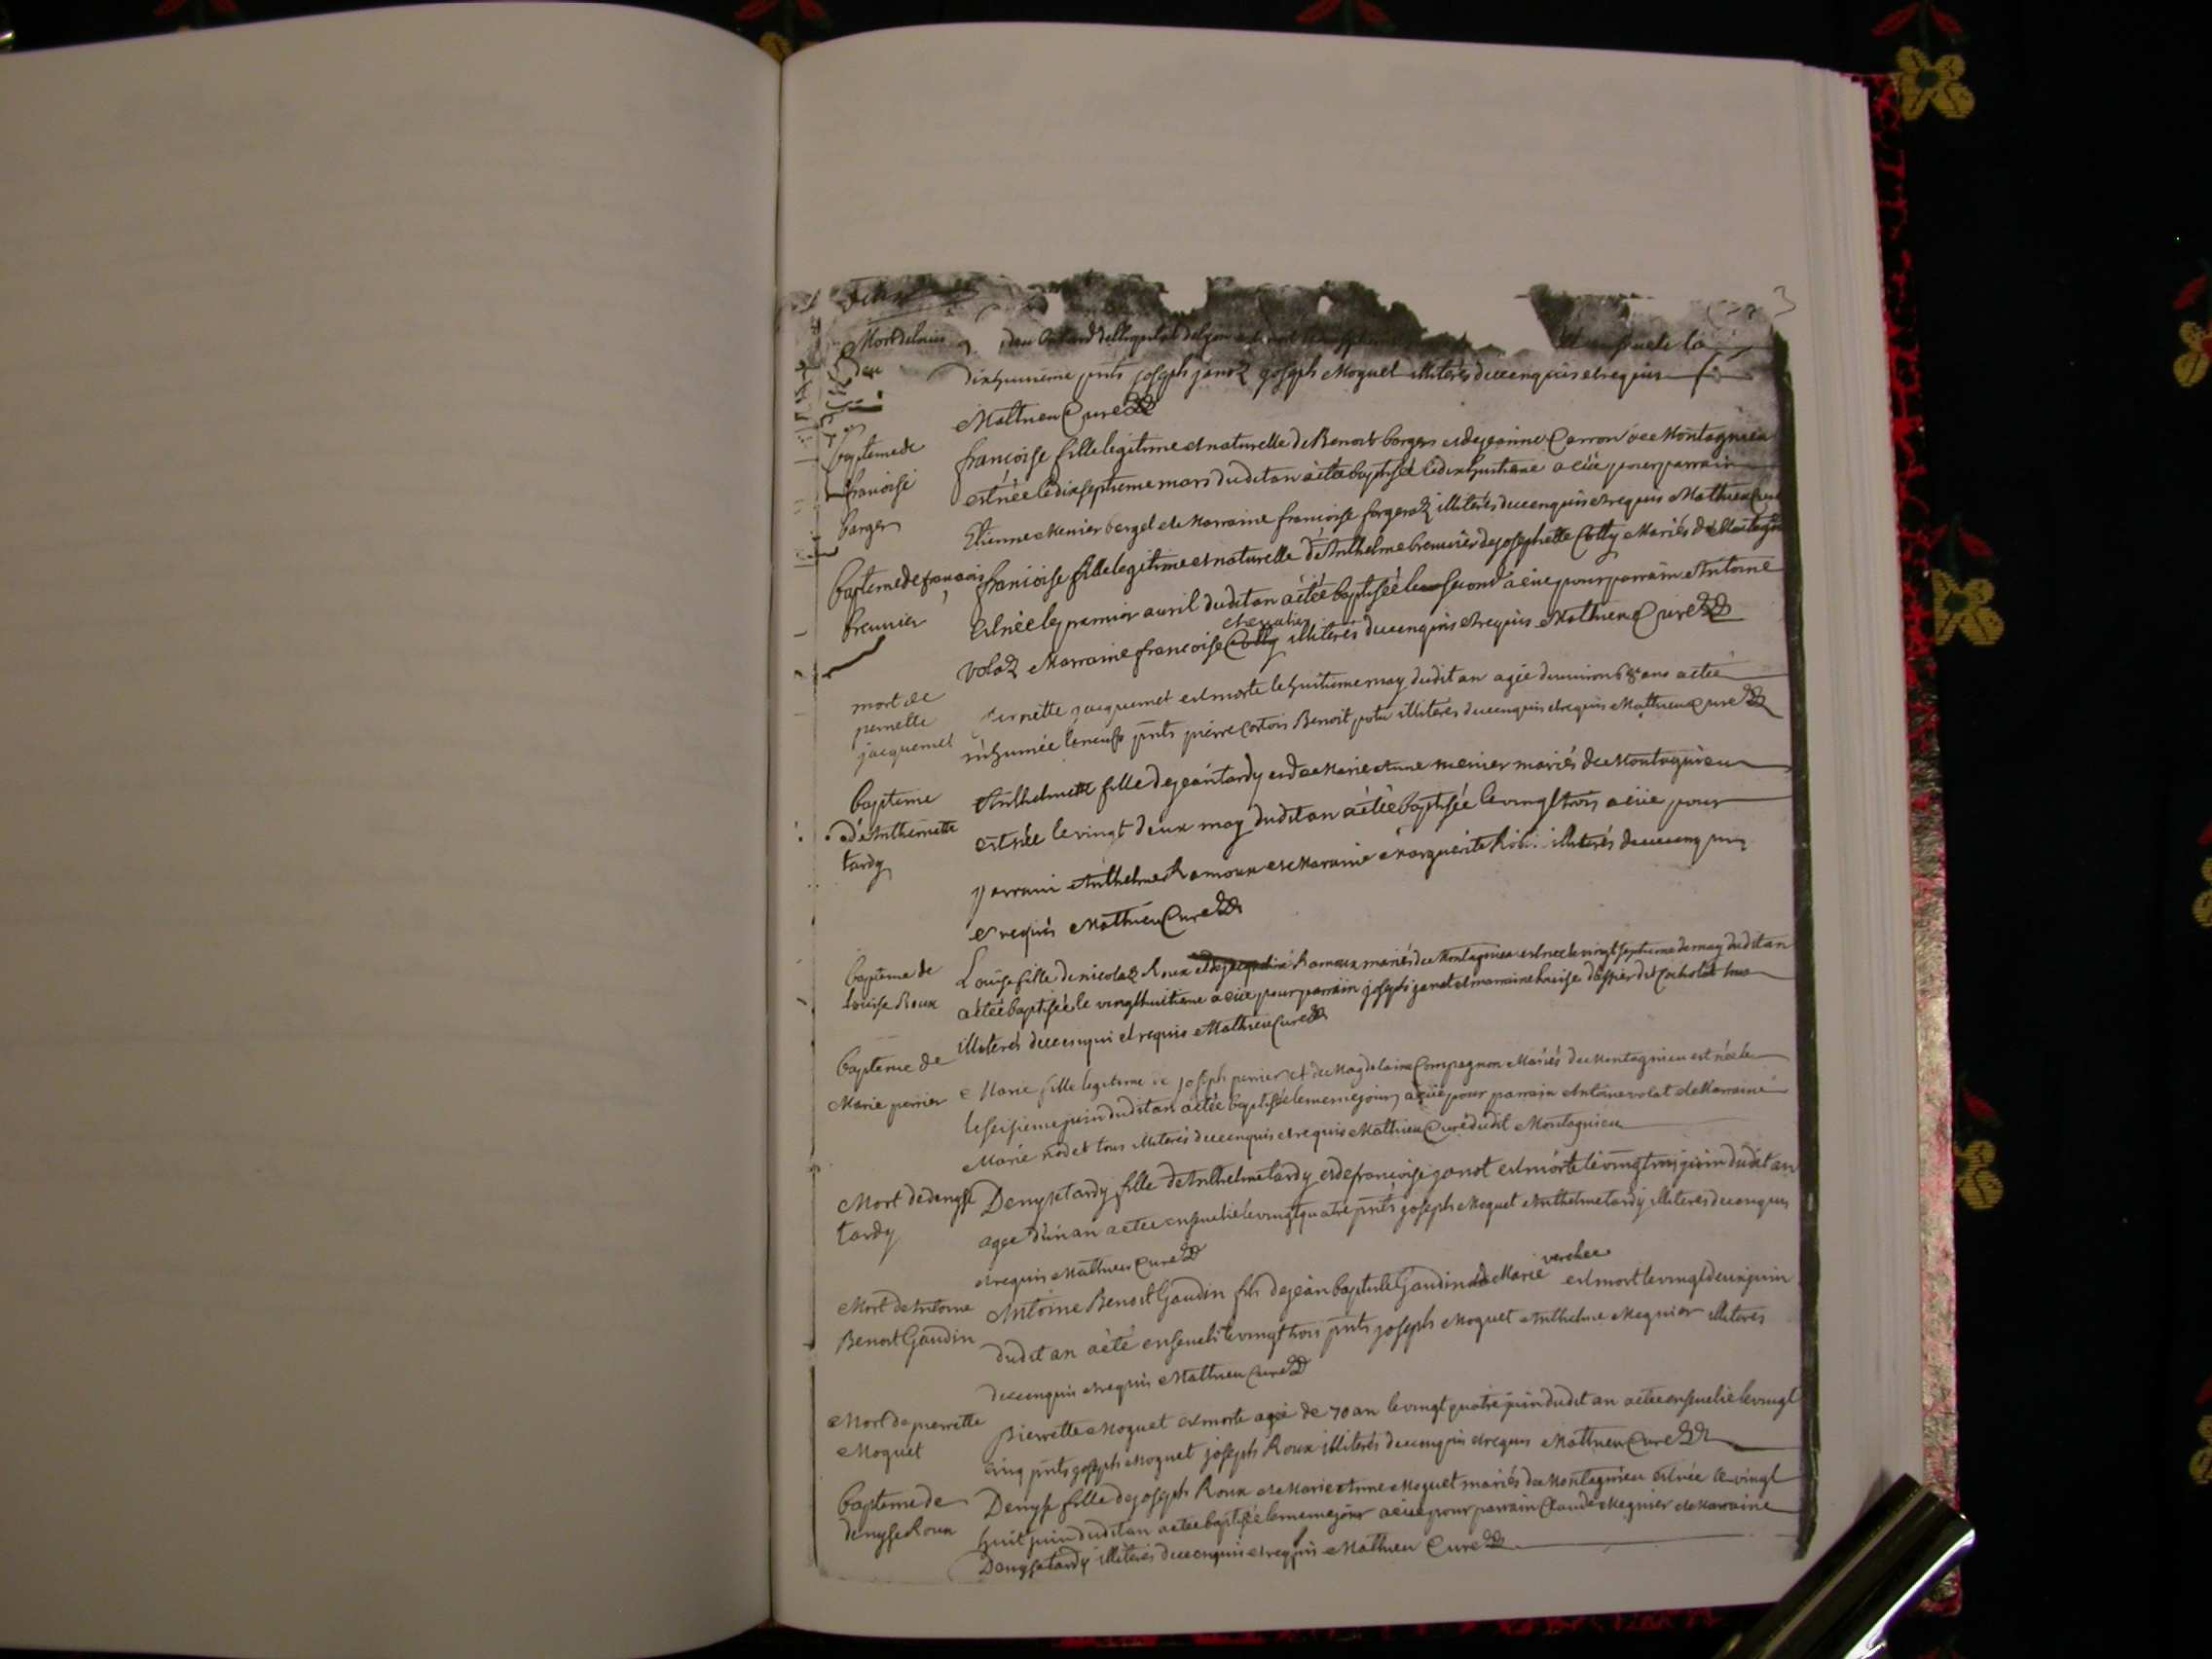 3
Mort de louis
dieu batard del hopital de lyon est mort
et ensueli le
dieu
dixhuitieme pnts joseph janot joseph Moguet illiterés de ce enquis et requis
Mathieu Curé
bapteme de
francoise
barger
francoise fille legitime et naturelle de Benoit barger et de jeanne Carron de Montagnieu
est née le dix septieme mars dudit an a été baptisée le dix huitieme a eüe pour parrain
Etienne Menier bergel et Marraine francoise fargeraz illiterés de ce enquis et requis Mathieu Curé
bapteme de francois
breunier
francoise fille legitime et naturelle d'Anthelme breunier de josephette Cotty Mariés de Montagn
est née le premier avril dudit an a étée baptisée le second a eüe pour parrain Antoine
chevalier
volaz Marraine francoise Cotty illiterés de ce enquis et requis Mathieu Curé
mort de
pernette
jacquemet
pernette jacquemet est morte le huitieme may dudit an agée d'environ 68 ans a étée
inhumée le neuf pnts pierre cortois Benoit potu illiterés de ce enquis et requis Mathieu Curé
bapteme
d'Anthermette
tardy
Anthelmette fille de jean tardy et de Marie Anne menier mariés de Montagnieu
est née le vingt deux may dudit an a étée baptisée le vingt trois a eüe pour
parrain Anthelme Ramoux et Marraine Marguerite Robi illiterés de ce enquis
et requis Mathieu Curé
bapteme de
louise Roux
Louise fille de nicolaz Roux et de jaqueline Ramoux mariés de Montagnieu est née le vingt septieme de may dudit an
a étée baptisée le vingt huitieme a eüe pour parrain joseph janot et marraine louise dassier dit Cocholat tous
illiterés de ce enquis et requis Mathieu Curé
bapteme de
Marie perrier
Marie fille legitime de joseph perrier et de Magdelaine Compagnon Mariés de Montagnieu est née le
le seizieme juin dudit an a étée baptisée le meme jour, a eüe pour parrain Antoine volat et Marraine
Marie nodet tous illiterés de ce enquis et requis Mathieu Curé dudit Montagnieu
Mort de denyse
tardy
Denyse tardy fille d'Anthelme tardy et de francoise janot est morte le vingt trois juin dudit an
agée d'un an a etée ensuelie le vingt quatre pnts joseph Moguet Anthelme tardy illiterés de ce enquis
et requis Mathieu Curé
Mort d'Antoine
Benoit Gaudin
verchere
Antoine Benoit Gaudin fils de jean baptiste Gaudin et de Marie est mort le vingt deux juin
dudit an a été ensueli le vingt trois pnts joseph Moguet Anthelme Megnier illiterés
de ce enquis et requis Mathieu Curé
Mort de pierrette
Moguet
Pierrette Moguet est morte agée de 70 an le vingt quatre juin dudit an a étée ensuelie le vingt
cinq pnts joseph Moguet joseph Roux illiterés de ce enquis et requis Mathieu Curé
bapteme de
denyse Roux
Denyse fille de joseph Roux et de Marie Anne Moguet mariés de Montagnieu est née le vingt
huit juin dudit an a étée baptisée le meme jour a eüe pour parrain Claude Megnier et Marraine
Denyse tardy illiterés de ce enquis et requis Mathieu Curé